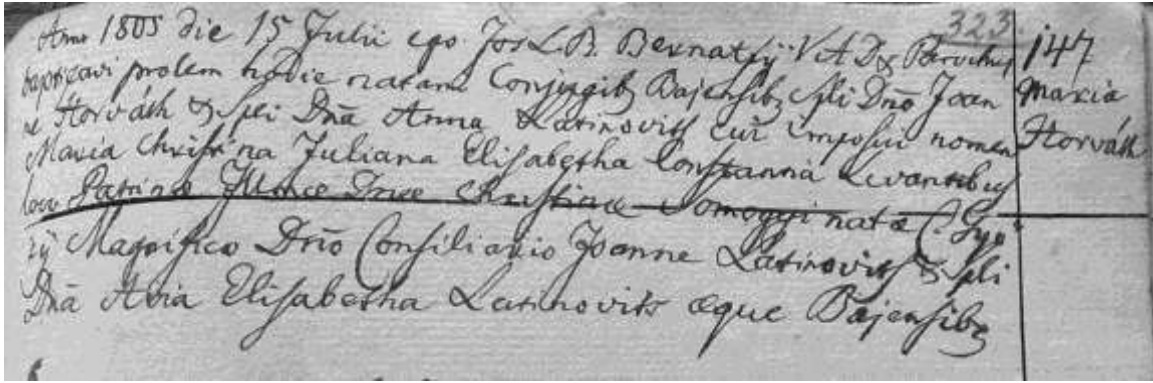 323
Anno 1805 die 15 Julii ego Jos L.B. Bernatfÿ V.A.D. & Parochus 147
baptizavi prolem hodie natam Conjugibq Bajensibq Spli Dnō Joan Maria
ne Horváth & Spli Dnā Anna Latinovits cui imposui nomen Horváth
Maria Christina Juliana Elisabetha Constantia Levantibus
loco Patrinæ Illmæ Dnæ Christinæ Somogyi natæ C. Gyo
rÿ Magnifico Dnō Consiliario Joanne Latinovits & Spli
Dnā Avia Elisabetha Latinovits æque Bajensibq